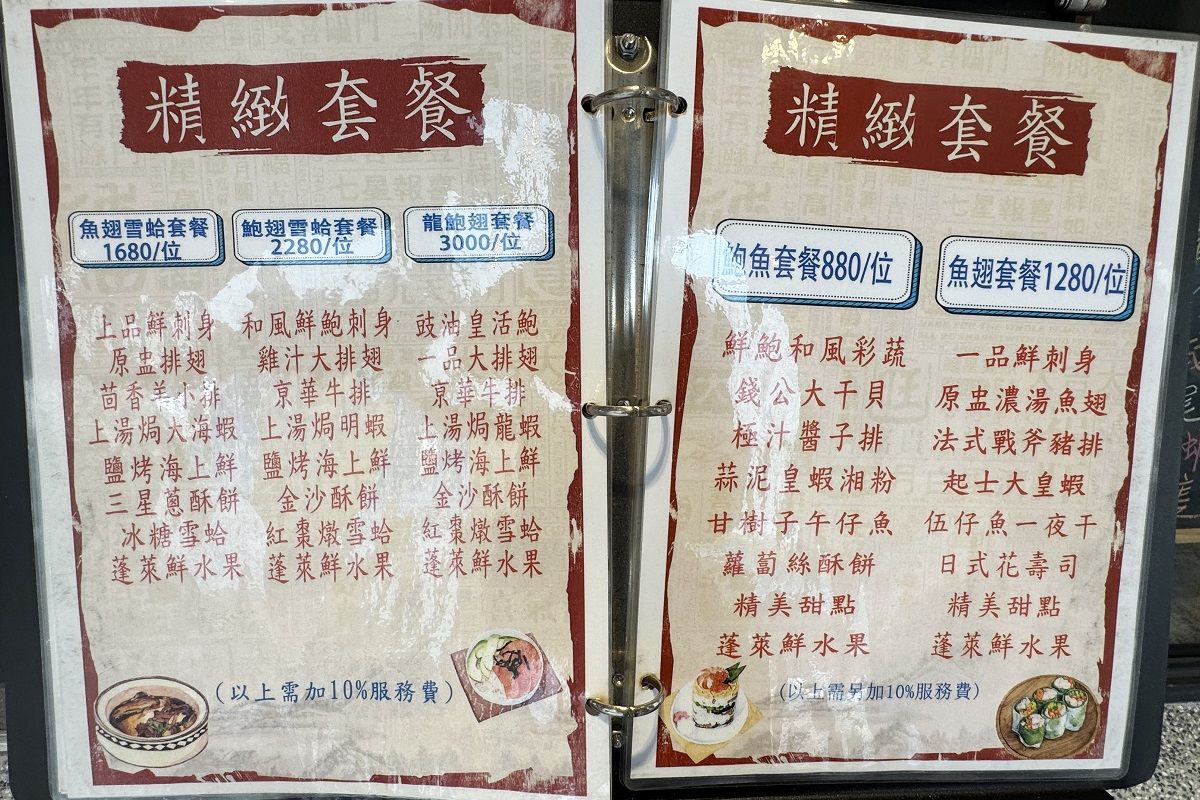 精緻套餐
魚翅雪蛤套餐
1680/位
上品鮮刺身
原盅排翅
茴香羊小排
上湯焗大海蝦
鹽烤海上鮮
三星蔥酥餅
冰糖雪蛤
蓬萊鮮水果
鮑翅雪蛤套餐
2280/位
和風鮮鮑刺身
雞汁大排翅
京華牛排
上湯焗明蝦
鹽烤海上鮮
金沙酥餅
紅棗燉雪蛤
蓬萊鮮水果
龍鮑翅套餐
3000/位
豉油皇活鮑
一品大排翅
京華牛排
上湯焗龍蝦
鹽烤海上鮮
金沙酥餅
紅棗燉雪蛤
蓬萊鮮水果
(以上需加10%服務費)
精緻套餐
鮑魚套餐880/位
鮮鮑和風彩蔬
錢公大干貝
極汁醬子排
蒜泥皇蝦湘粉
甘樹子午仔魚
蘿蔔絲酥餅
精美甜點
蓬萊鮮水果
魚翅套餐1280/位
一品鮮刺身
原盅濃湯魚翅
法式戰斧豬排
起士大皇蝦
伍仔魚一夜干
日式花壽司
精美甜點
蓬萊鮮水果
(以上需另加10%服務費)